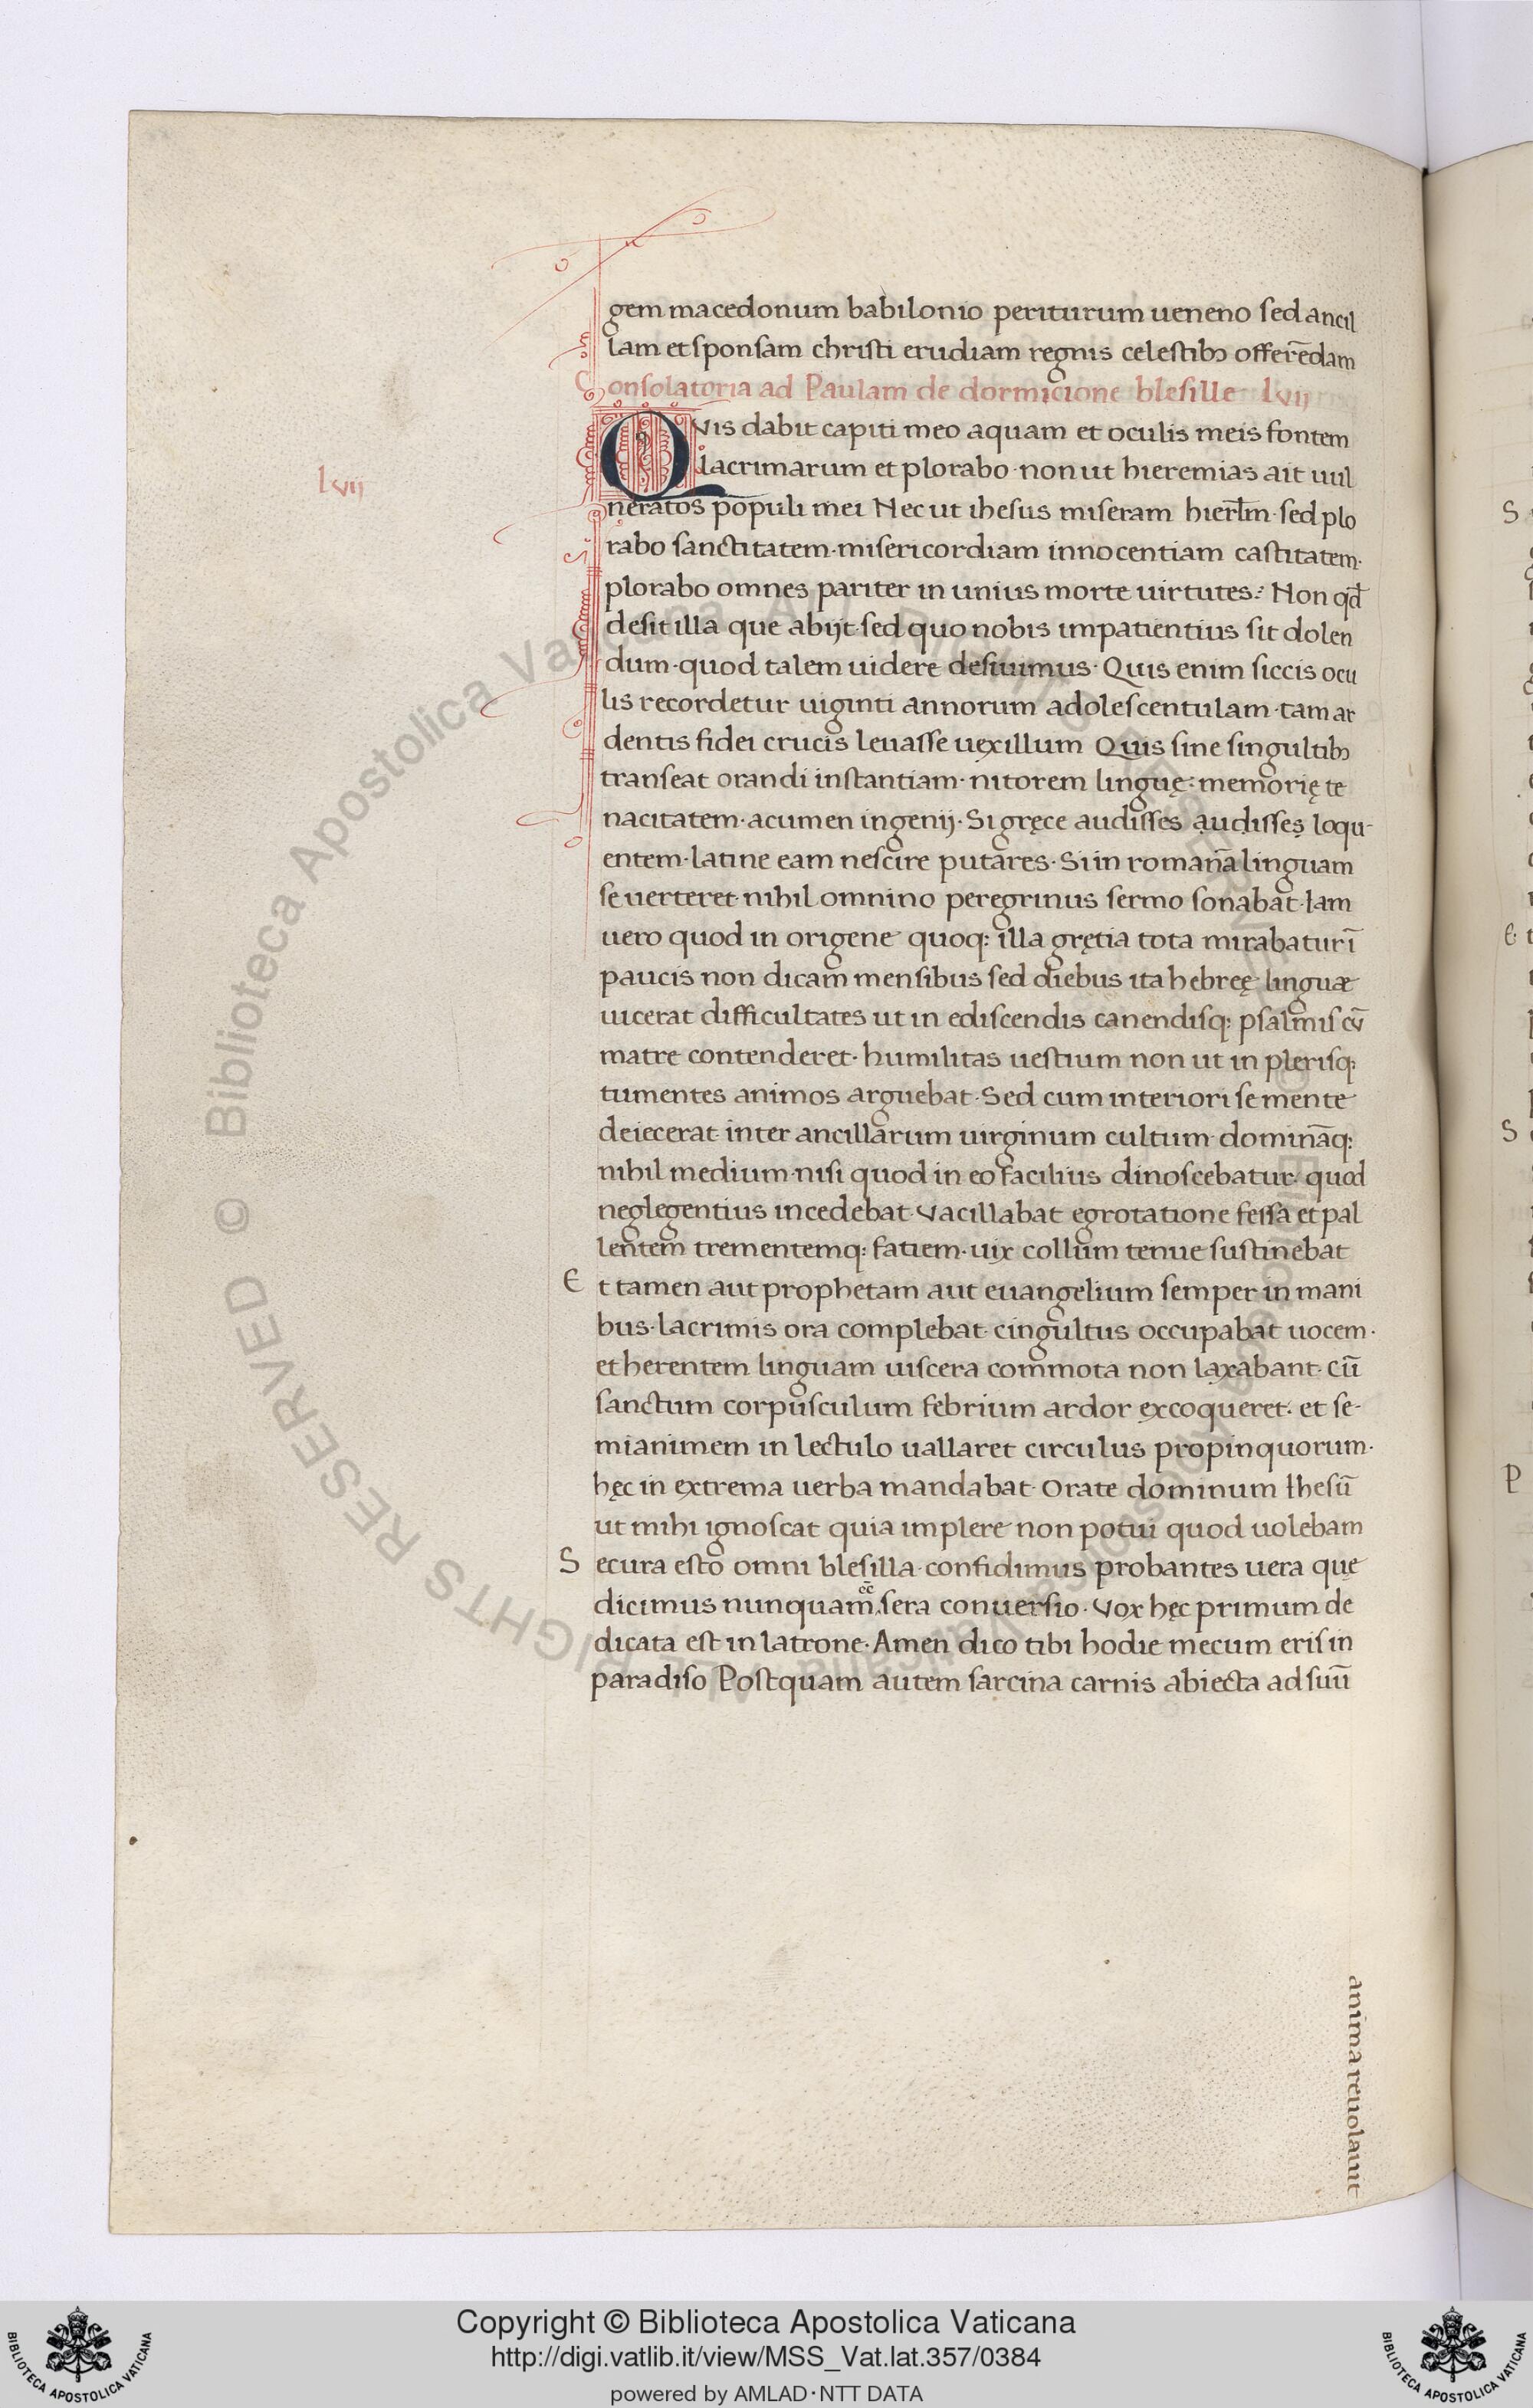 gem macedonum babilonio periturum ueneno sed ancil
lam et sponsam christi erudiam regnis celestibꝫ offerēdam
Consolatoria ad Paulam de dormicione blesille lvij
lvij
QVis dabit capiti meo aquam et oculis meis fontem
lacrimarum et plorabo· non ut hieremias ait uul
neratos populi mei Nec ut ihesus miseram hierłm· sed plo
rabo sanctitatem· misericordiam innocentiam castitatem·
plorabo omnes pariter in unius morte uirtutes: Non qđ
desit illa que abijt· sed quo nobis impatientius sit dolen
dum· quod talem uidere desiuimus· Quis enim siccis ocu
lis recordetur uiginti annorum adolescentulam· tam ar
dentis fidei crucis leuasse uexillum Quis sine singultibꝫ
transeat orandi instantiam· nitorem linguę: memorię te
nacitatem· acumen ingenij· Si gręce audisses ạụdịssẹs loqu-
entem· latine eam nescire putares· Si in romanā linguam
se uerteret· nihil omnino peregrinus sermo sonabat· Iam
uero quod in origene quoq: illa gręcia tota mirabatur ī
paucis non dicam mensibus sed diebus ita hebreę linguæ
uicerat difficultates ut in ediscendis canendisq: psalmis cū
matre contenderet· humilitas uestium non ut in plerisq:
tumentes animos arguebat· Sed cum interiori se mente
deiecerat· inter ancillarum uirginum cultum domināq:
nihil medium· nisi quod in eo facilius dinoscebatur· quod
neglegentius incedebat· Vacillabat egrotatione fessa et pal
lentem trementemq: fatiem· uix collum tenue sustinebat
Et tamen aut prophetam aut euangelium semper in mani
bus· lacrimis ora complebat· cingultus occupabat uocem·
et herentem linguam uiscera commota non laxabant· cū
sanctum corpusculum febrium ardor excoqueret· et se-
mianimem in lectulo uallaret circulus propinquorum·
hęc in extrema uerba mandabat· Orate dominum Ihesū
ut mihi ignoscat quia implere non potui quod uolebam
Secura esto omni blesilla· confidimus probantes uera quę
dicimus nunquam ēē sera conuersio· Vox hęc primum de
dicata est in latrone· Amen dico tibi hodie mecum eris in
paradiso Postquam autem sarcina carnis abiecta ad suū
anima reuolauit
S
E
S
P
© Biblioteca Apostolica Vaticana ALL RIGHTS RESERVED
Copyright © Biblioteca Apostolica Vaticana
http://digi.vatlib.it/view/MSS_Vat.lat.357/0384
powered by AMLAD·NTT DATA
BIBLIOTECA APOSTOLICA VATICANA
BIBLIOTECA APOSTOLICA VATICANA